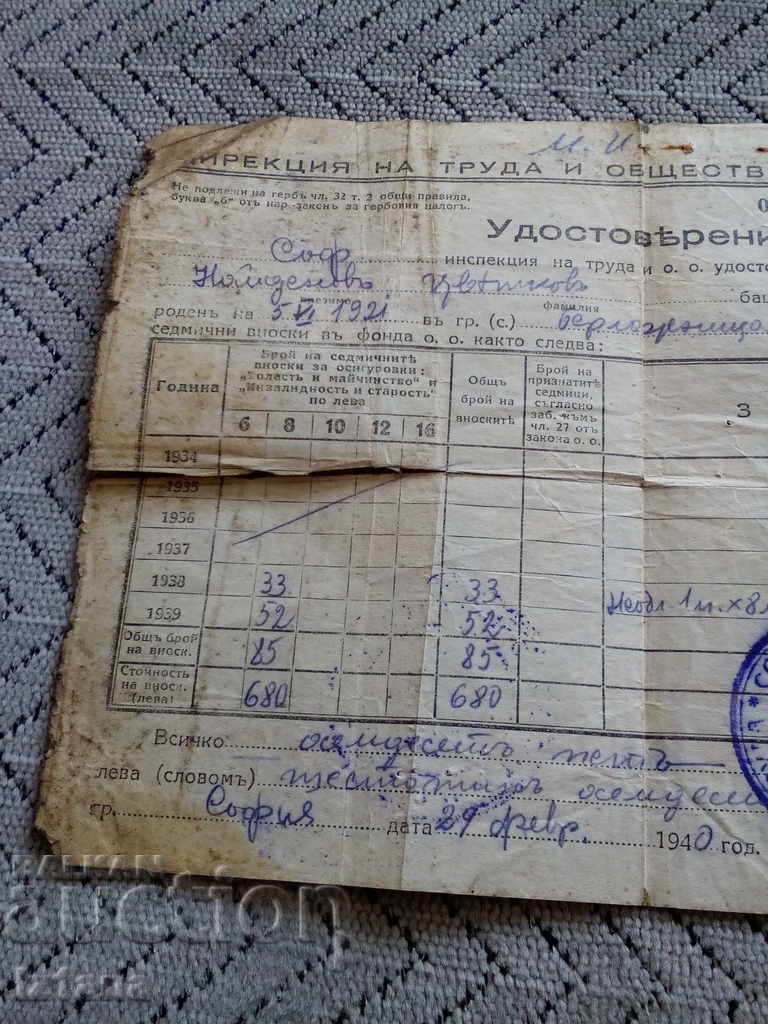 М. И.
ДИРЕКЦИЯ НА ТРУДА И ОБЩЕСТВ
Не подлежи на гербъ чл. 32 т. 2 общи правила,
буква „б“ отъ нар.-законъ за гербовия налогъ.
Удостовѣрени
Соф. инспекция на труда и о. о. удосто
Найденовъ Цвѣтковъ бащ
презиме фамилия
роденъ на 5 VI 1921 въ гр. (с.)
седмични вноски въ фонда о. о. както следва:
Година
Брой на седмичнитѣ вноски за осигуровки: „Болесть и майчинство“ и „Инвалидность и старость“ по лева
Общъ брой на вноскитѣ
Брой на признатитѣ седмици, съгласно заб. къмъ чл. 27 отъ закона о. о.
З
6 8 10 12 16
1934
1935
1936
1937
1938 33 33
1939 52 52
Неодл. 1 м. х 8 л
Общъ брой на вноск. 85 85
Стойность на вноск. (лева) 680 680
Всичко осемдесетъ петь
лева (словомъ) шестотинъ осемдесе
гр. София дата 29 февр. 1940 год.
BALKAN
auction
iziana